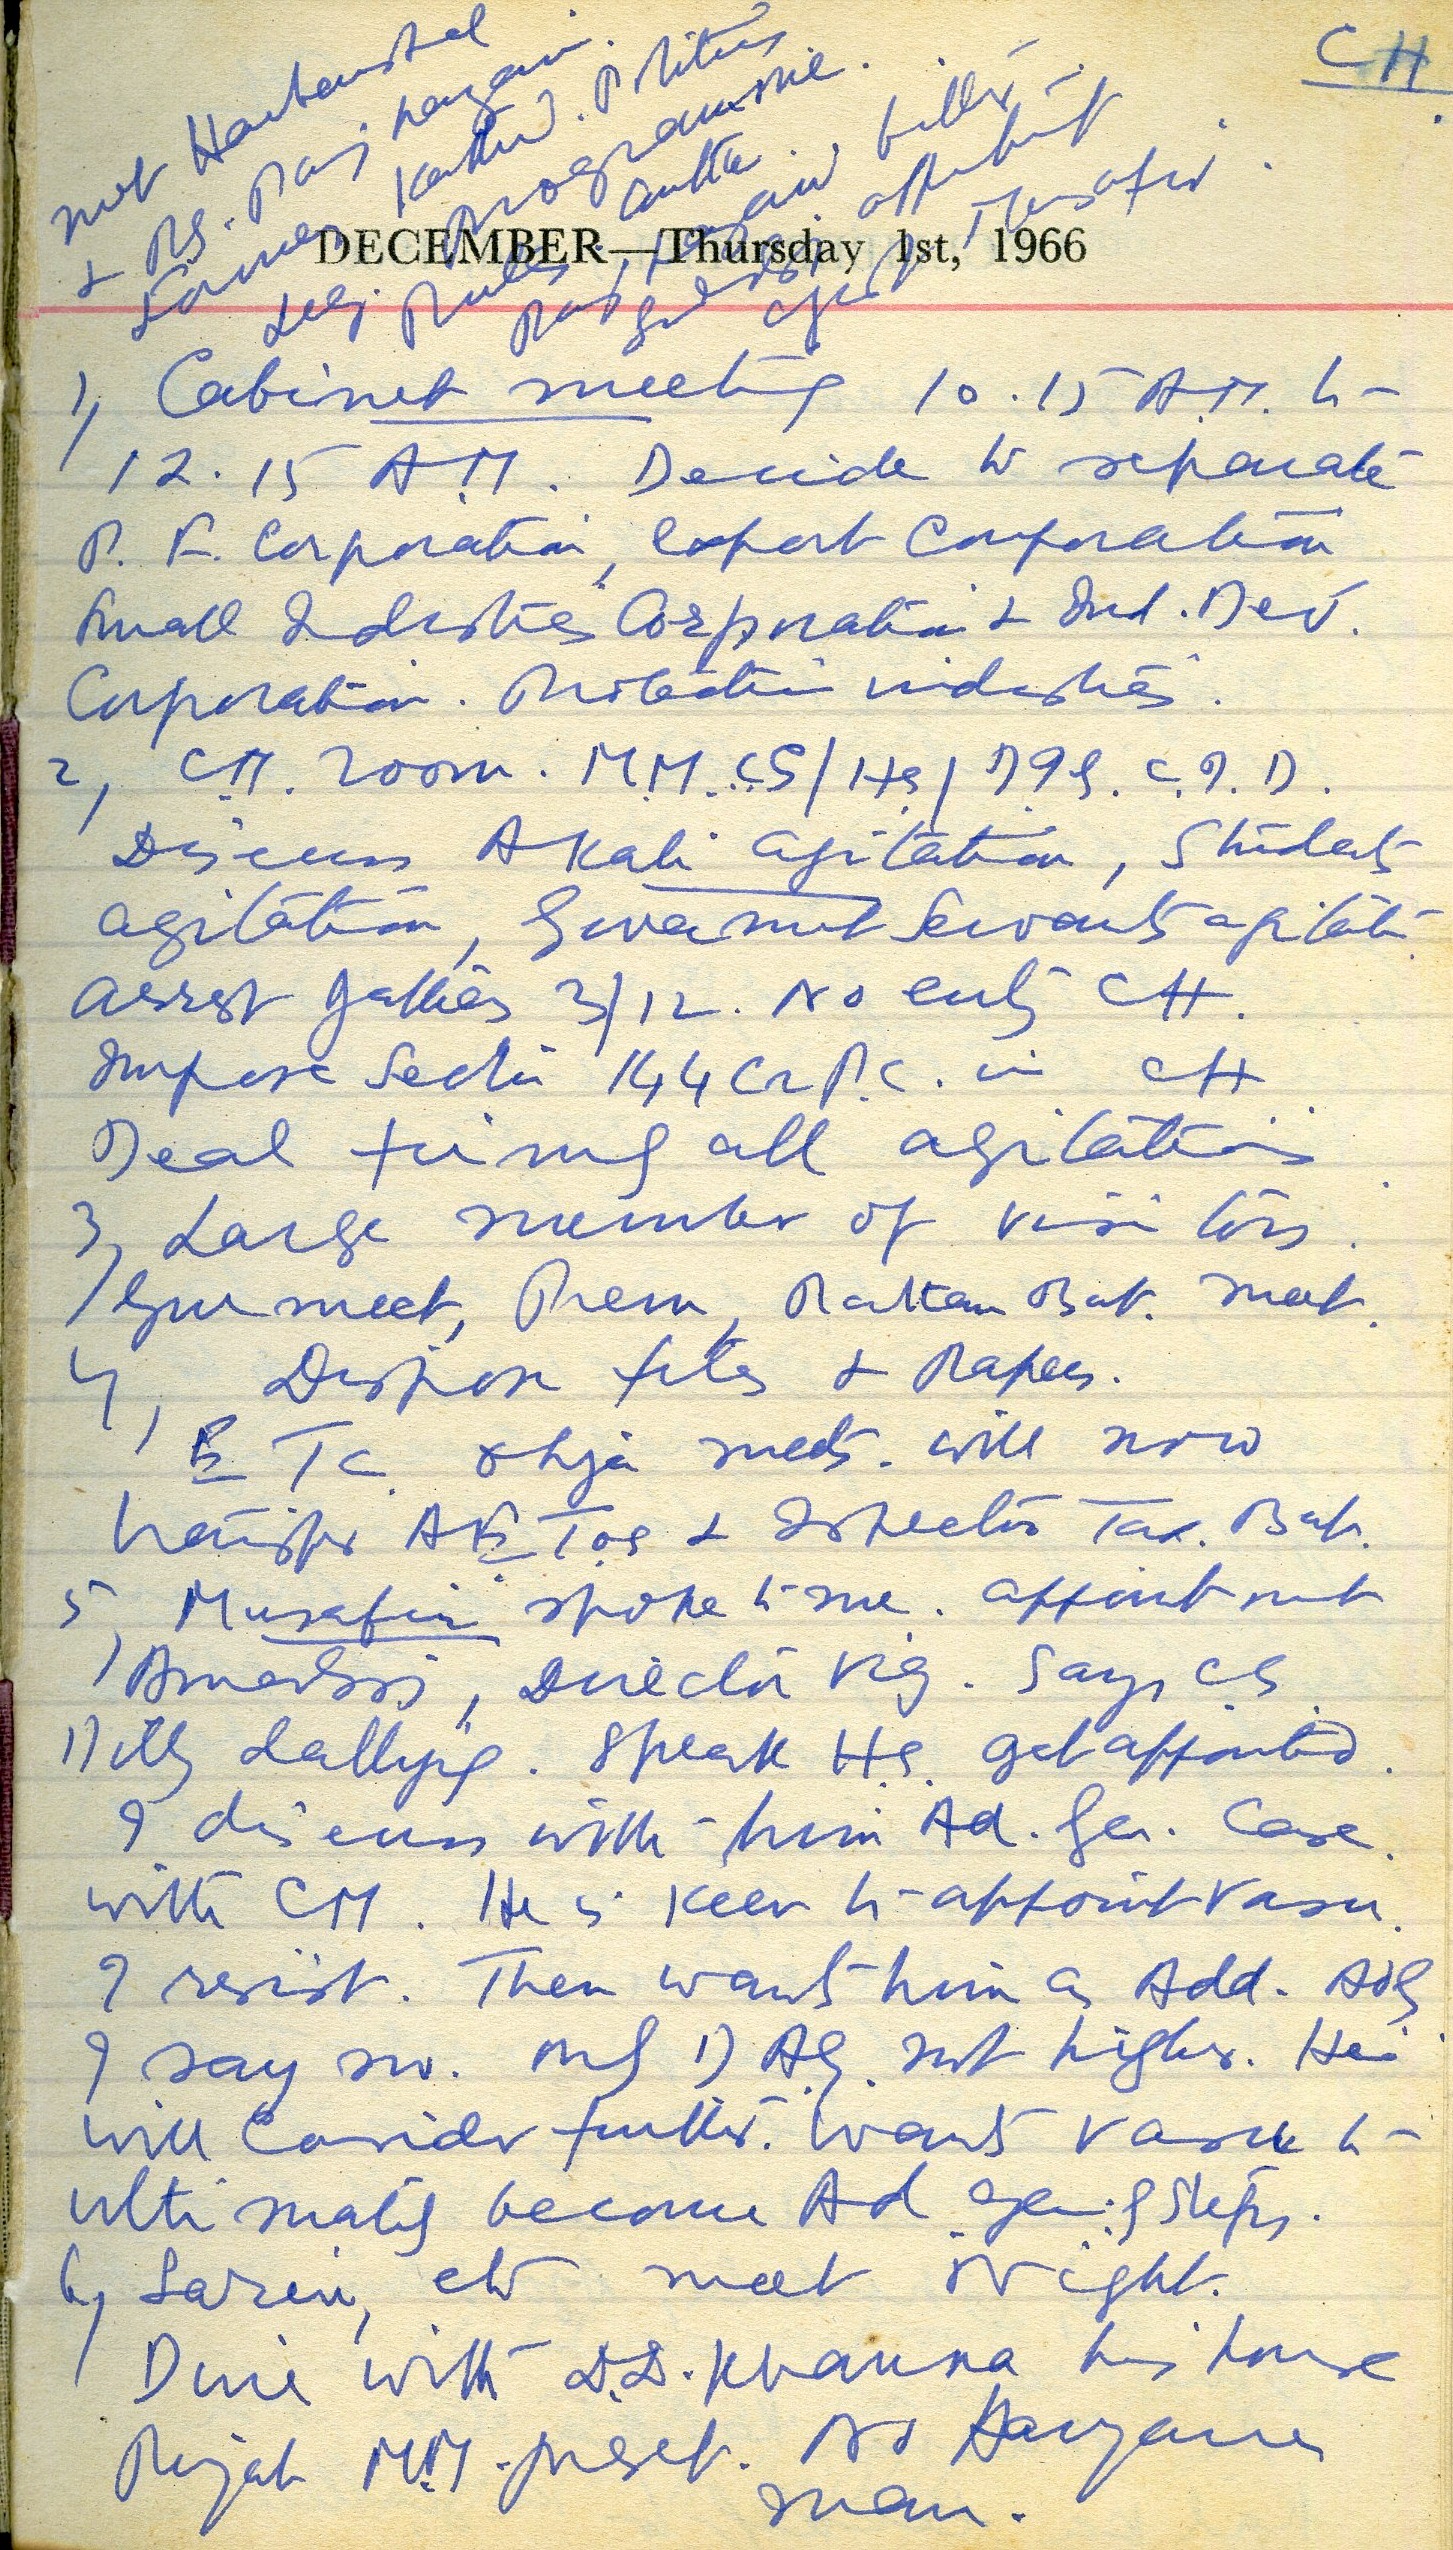 CH
met Harbans Lal
& Pg. Raj. Haryana.
Former Politics
programme.
Rules
DECEMBER—Thursday 1st, 1966
1, Cabinet meeting 10.15 A.M. to
12.15 A.M. Decide to separate
P. F. Corporation, Export Corporation
Small Industries Corporation & Ind. Dev.
Corporation. industries.
2, CM. room. M.M. CS/HS/DIG. C.I.D.
Discuss Akali agitation, Students
agitation, Government Servants agitation
arrest Jathas 3/12. No entry CH.
Impose Section 144 CrPC. in CH
Deal firmly all agitations
3, Large number of visitors.
Gurmeet, Prem, Rattan Bat. meet.
4, Dispose files & Papers.
ETC. Ohja meets. will now
transfer AETOs & Inspector Tax. Bat.
5, Musafir spoke to me. appointment
, Director Vig. Says CS
Dilly dallying. Speak H.S. get appointed.
I discuss with him Ad. Gen. Case.
with CM. He is keen to appoint Vasu.
I resist. Then wants him as Add. AG
I say no. only DAG. not higher. He
will consider further. Wants Vasu to
ultimately become Ad gen. steps.
6, Sarin, etc meet Night.
Dine with D.D. Khanna his house
Punjab M.M. present. No Haryana
man.